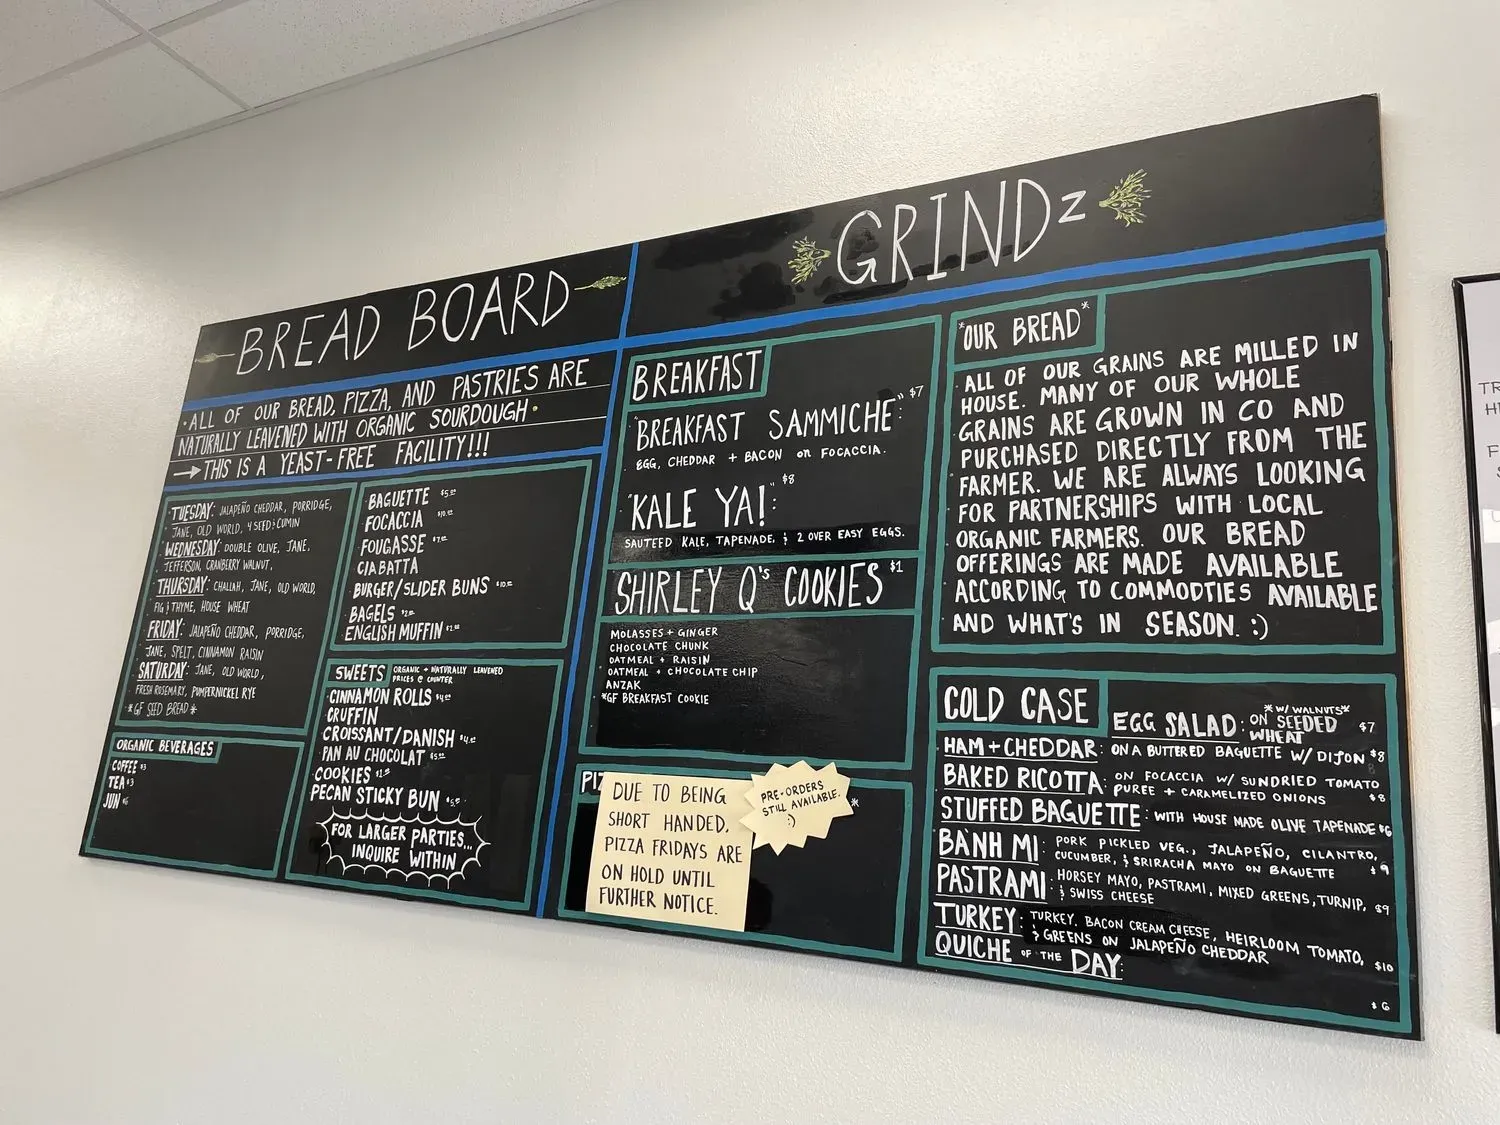 BREAD BOARD
·ALL OF OUR BREAD, PIZZA, AND PASTRIES ARE
NATURALLY LEAVENED WITH ORGANIC SOURDOUGH·
→THIS IS A YEAST-FREE FACILITY!!!
TUESDAY: JALAPEÑO CHEDDAR, PORRIDGE,
JANE, OLD WORLD, 4 SEED & CUMIN
WEDNESDAY: DOUBLE OLIVE, JANE,
JEFFERSON, CRANBERRY WALNUT,
THURSDAY: CHALLAH, JANE, OLD WORLD,
FIG & THYME, HOUSE WHEAT
FRIDAY: JALAPEÑO CHEDDAR, PORRIDGE,
JANE, SPELT, CINNAMON RAISIN
SATURDAY: JANE, OLD WORLD,
FRESH ROSEMARY, PUMPERNICKEL RYE
*GF SEED BREAD*
ORGANIC BEVERAGES
COFFEE $3
TEA $3
JUN
BAGUETTE
FOCACCIA
FOUGASSE
CIABATTA
BURGER/SLIDER BUNS
BAGELS
ENGLISH MUFFIN
SWEETS
ORGANIC + NATURALLY LEAVENED
PRICES @ COUNTER
CINNAMON ROLLS
CRUFFIN
CROISSANT/DANISH
PAN AU CHOCOLAT
COOKIES
PECAN STICKY BUN
FOR LARGER PARTIES...
INQUIRE WITHIN
GRINDZ
BREAKFAST
"BREAKFAST SAMMICHE": $7
EGG, CHEDDAR + BACON on FOCACCIA.
"KALE YA!" $8
SAUTEED KALE, TAPENADE, & 2 OVER EASY EGGS.
SHIRLEY Q's COOKIES $1
MOLASSES + GINGER
CHOCOLATE CHUNK
OATMEAL + RAISIN
OATMEAL + CHOCOLATE CHIP
ANZAK
*GF BREAKFAST COOKIE
DUE TO BEING
SHORT HANDED,
PIZZA FRIDAYS ARE
ON HOLD UNTIL
FURTHER NOTICE.
PRE-ORDERS
STILL AVAILABLE.
:)
*OUR BREAD*
ALL OF OUR GRAINS ARE MILLED IN
HOUSE. MANY OF OUR WHOLE
GRAINS ARE GROWN IN CO AND
PURCHASED DIRECTLY FROM THE
FARMER. WE ARE ALWAYS LOOKING
FOR PARTNERSHIPS WITH LOCAL
ORGANIC FARMERS. OUR BREAD
OFFERINGS ARE MADE AVAILABLE
ACCORDING TO COMMODTIES AVAILABLE
AND WHAT'S IN SEASON. :)
COLD CASE
EGG SALAD: ON SEEDED WHEAT *W/ WALNUTS* $7
HAM + CHEDDAR: ON A BUTTERED BAGUETTE W/ DIJON $8
BAKED RICOTTA: ON FOCACCIA W/ SUNDRIED TOMATO
PUREE + CARAMELIZED ONIONS $8
STUFFED BAGUETTE: WITH HOUSE MADE OLIVE TAPENADE $6
BÀNH MI: PORK PICKLED VEG., JALAPEÑO, CILANTRO,
CUCUMBER, & SRIRACHA MAYO ON BAGUETTE $9
PASTRAMI: HORSEY MAYO, PASTRAMI, MIXED GREENS, TURNIP,
& SWISS CHEESE $9
TURKEY: TURKEY, BACON CREAM CHEESE, HEIRLOOM TOMATO,
& GREENS ON JALAPEÑO CHEDDAR $10
QUICHE OF THE DAY:
$6